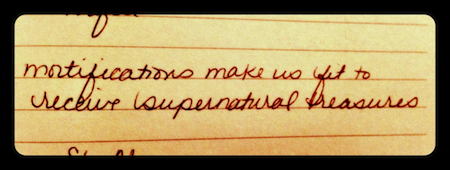 mortifications make us fit to
receive supernatural treasures